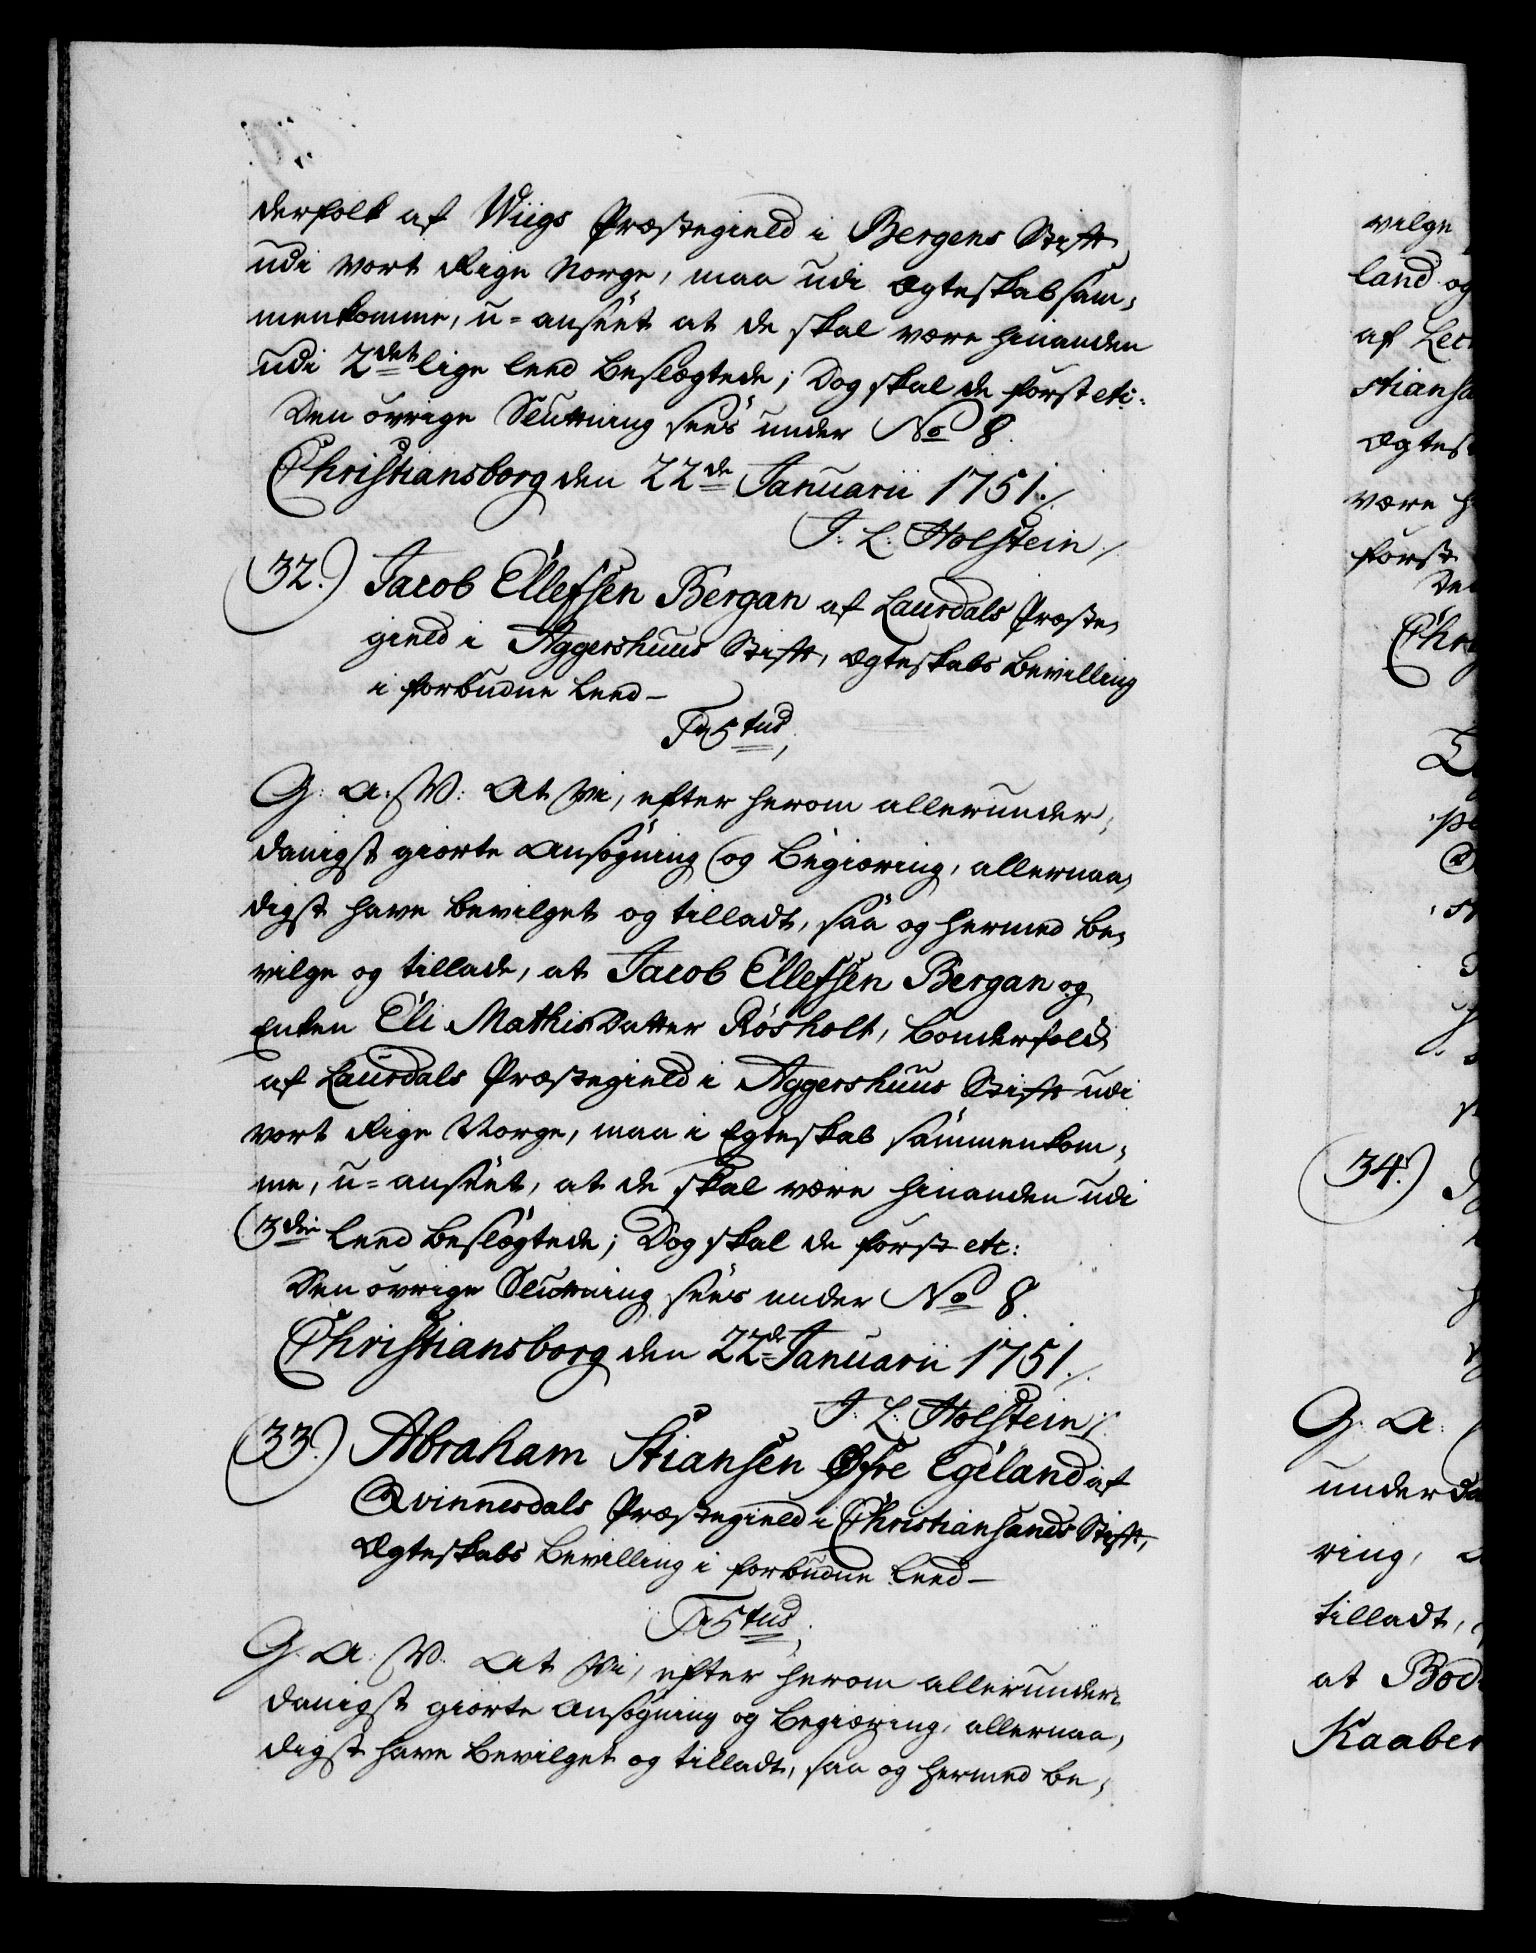 derfolk af Wiigs Præstegield i Bergens Stift
udi vort Rige Norge, maa udi Ægteskab sam-
menkomme, u-anseet at de skal være hinanden
udi 2det lige Leed Beslægtede; Dog skal de først etc:
Den övrige Sluttning sees under No 8.
Christiansborg den 22de Januarii 1751./.
J: L: Holstein./
32.) Jacob Ellefsen Bergan af Laurdals Præste-
gield i Aggershuus Stift, Ægteskabs Bevilling
i forbudne Leed-
F5tus,
G: A: V: At Vi, efter herom allerunder-
danigst giorte Ansøgning og Begiæring, allernaa-
digst have bevilget og tilladt, saa og hermed be-
vilge og tillade, at Jacob Ellefsen Bergan og
Enken Eli Mathis Datter Røsholt, Bonderfolk
af Laurdals Præstegield i Aggershuus Stift udi
vort Rige Norge, maa i Egteskab sammenkom-
me, u-anseet, at de skal være hinanden udi
3die Leed Beslægtede; Dog skal de først etc:
Den övrige Sluttning sees under No 8.
Christiansborg den 22de Januarii 1751./.
J: L: Holstein./.
33.) Abraham Stiansen Øfre Egeland af
Qvinnesdals Præstegield i Christiansands Stift,
Ægteskabs Bevilling i forbudne Leed-
F5tus,
G. A: V. At Vi, efter herom allerunder-
danigst giorte Ansøgning og Begiæring, allernaa-
digst have Bevilget og tilladt, saa og hermed be-
vilge
land og
af
stiansa
Ægtes
være h
først
De
Chr
34.)
G: A:
underda
ring,
tilladt,
at Bod
Kaaber